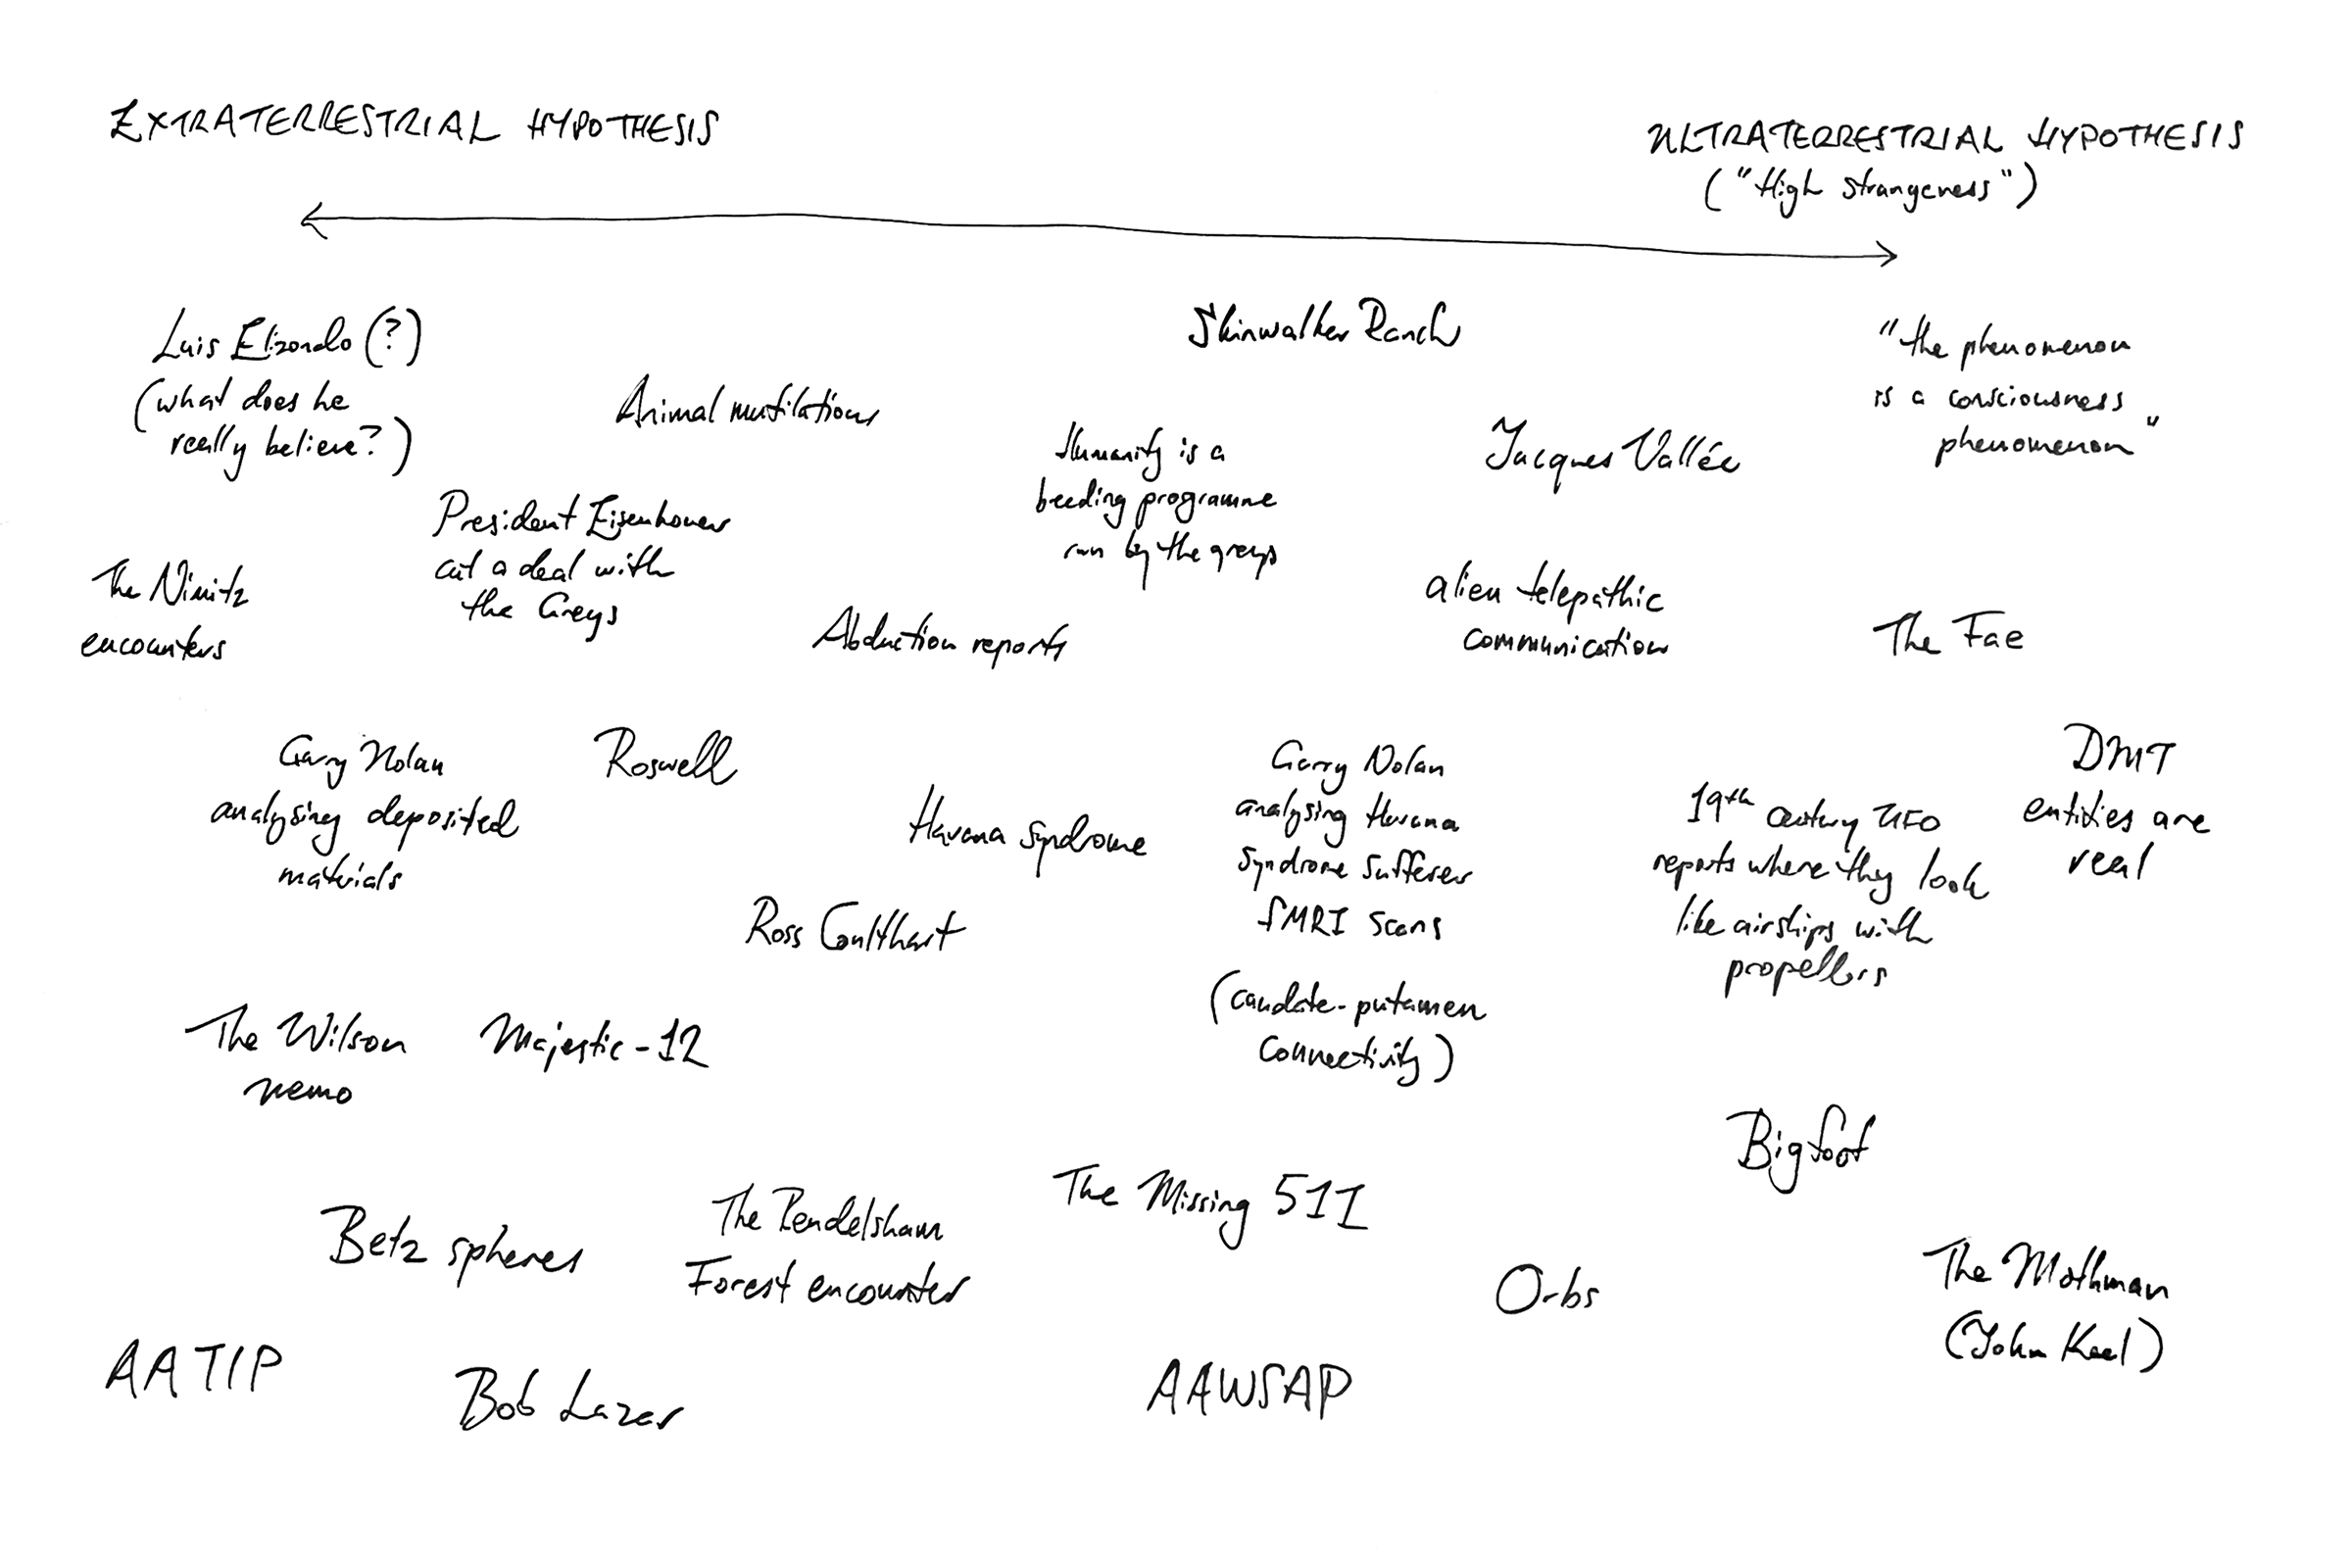 EXTRATERRESTRIAL HYPOTHESIS
ULTRATERRESTRIAL HYPOTHESIS
("High Strangeness")
Luis Elizondo (?)
(what does he
really believe?)
Animal mutilations
Skinwalker Ranch
"the phenomenon
is a consciousness
phenomenon"
Humanity is a
beeding programme
run by the greys
Jacques Vallée
President Eisenhower
cut a deal with
the Greys
The Nimitz
encounters
Abduction reports
alien telepathic
communication
The Fae
Garry Nolan
analysing deposited
materials
Roswell
Havana Syndrome
Garry Nolan
analysing Havana
Syndrome sufferer
fMRI scans
(caudate-putamen
connectivity)
19th century UFO
reports where they look
like airships with
propellors
DMT
entities are
real
Ross Coulthart
The Wilson
memo
Majestic-12
Bigfoot
Betz spheres
The Rendelsham
Forest encounter
The Missing 511
Orbs
The Mothman
(John Keel)
AATIP
Bob Lazar
AAWSAP